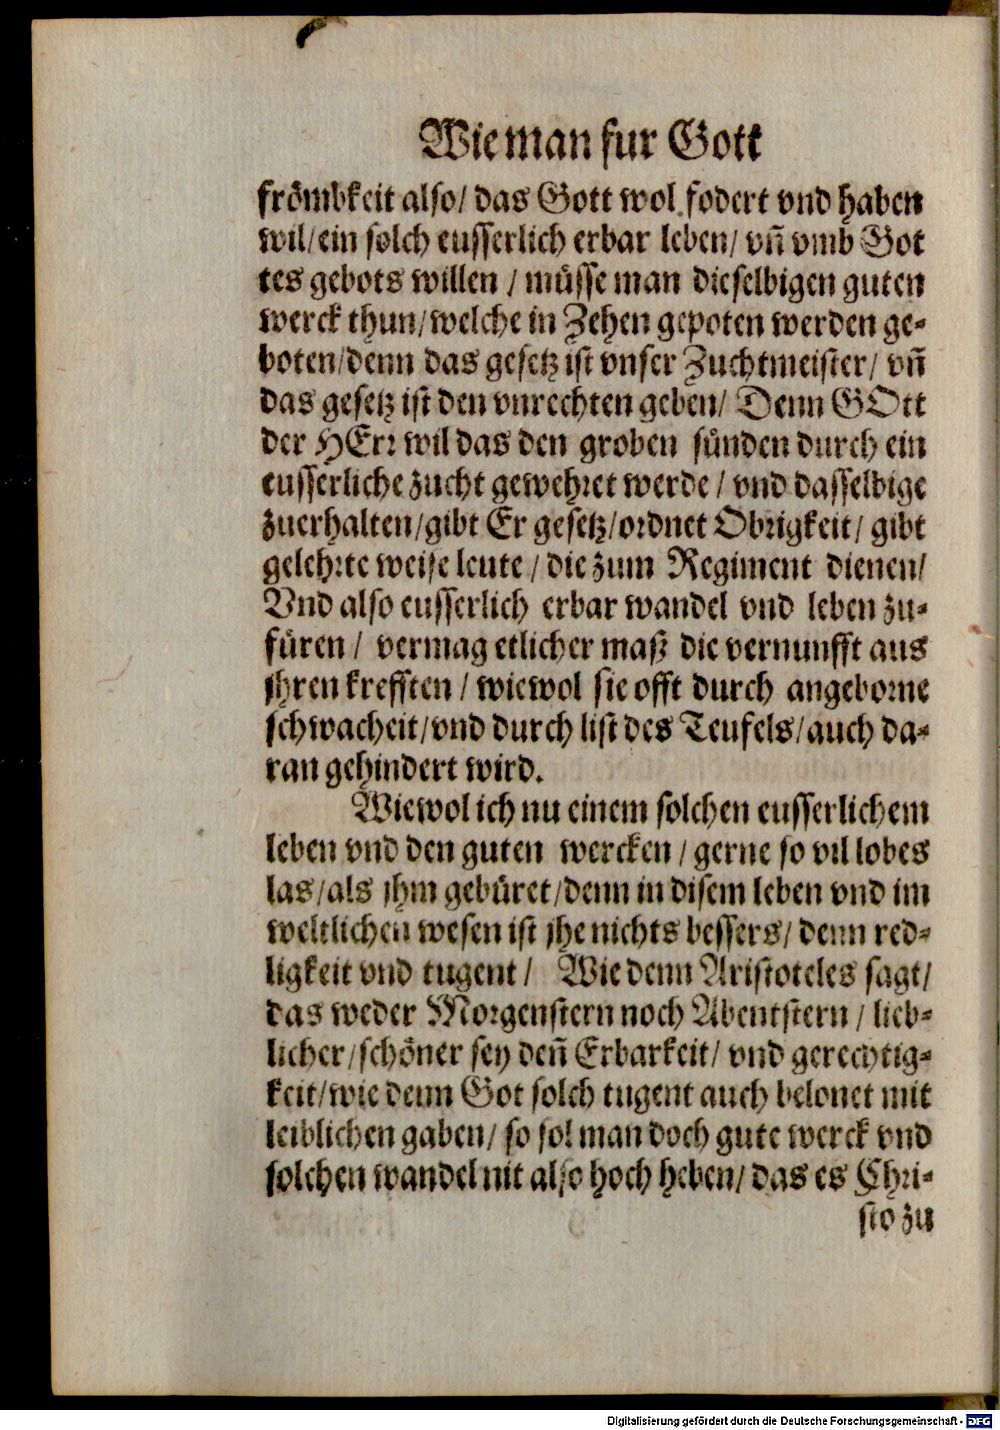 Wie man fur Gott
frömbkeit also/ das Gott wol fodert vnd haben
wil/ein solch eusserlich erbar leben/ vñ vmb Got
tes gebots willen / müsse man dieselbigen guten
werck thun/welche in Zehen gepoten werden ge-
boten/denn das gesetz ist vnser Zuchtmeister/ vñ
das gesetz ist den vnrechten geben/ Denn GOtt
der HErr wil das den groben sünden durch ein
eusserliche zucht gewehret werde / vnd dasselbige
zuerhalten/gibt Er gesetz/ordnet Obrigkeit/ gibt
gelehrte weise leute / die zum Regiment dienen/
Vnd also eusserlich erbar wandel vnd leben zu-
füren / vermag etlicher maß die vernunfft aus
jhren krefften / wiewol sie offt durch angeborne
schwacheit/vnd durch list des Teufels/auch da-
ran gehindert wird.
Wiewol ich nu einem solchen eusserlichem
leben vnd den guten wercken / gerne so vil lobes
las/als jhm gebüret/denn in disem leben vnd im
weltlichen wesen ist jhe nichts bessers/ denn red-
ligkeit vnd tugent / Wie denn Aristoteles sagt/
das weder Morgenstern noch Abentstern / lieb-
licher/schöner sey deñ Erbarkeit/ vnd gerechtig-
keit/wie denn Got solch tugent auch belonet mit
leiblichen gaben/ so sol man doch gute werck vnd
solchen wandel nit also hoch heben/ das es Chri-
sto zu
Digitalisierung gefördert durch die Deutsche Forschungsgemeinschaft - DFG